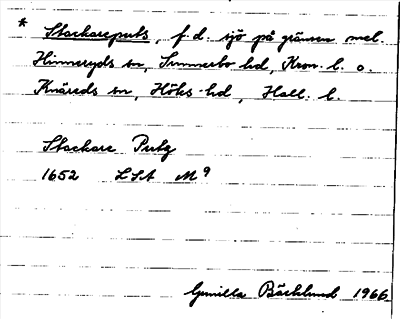 * Stackareputs, f.d. sjö på gränsen mel.
Hinneryds sn, Sunnerbo hd, Kron. l. o.
Knäreds sn, Höks hd, Hall. l.
Stackare Putz
1652 LSA M⁹
Gunilla Bäcklund 1966